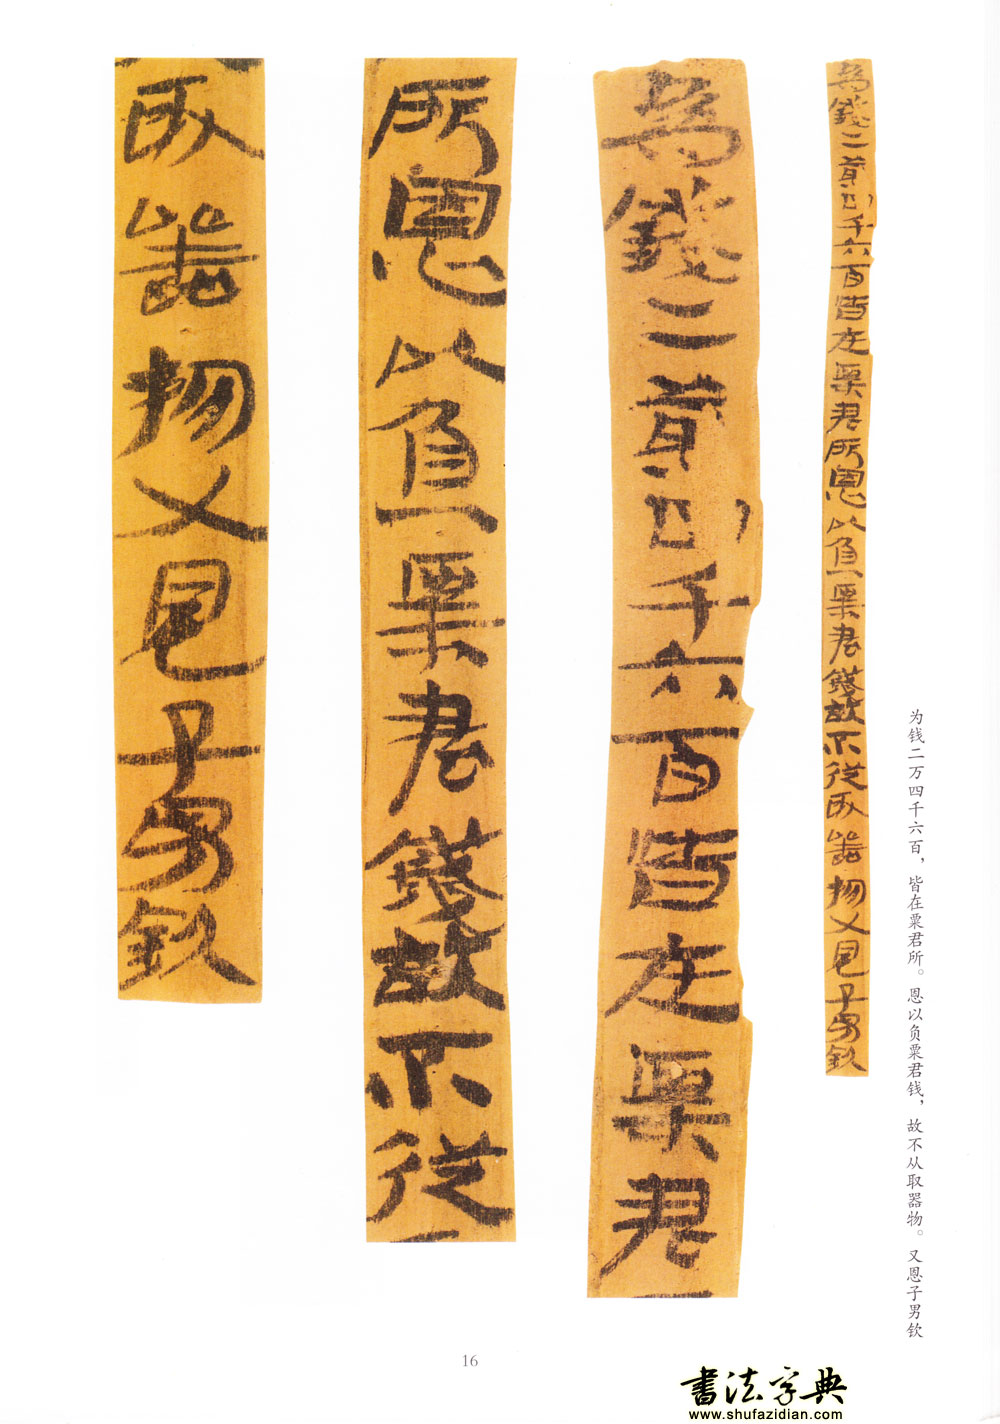 为钱二万四千六百，皆在粟君所。恩以负粟君钱，故不从取器物。又恩子男钦
為錢二萬四千六百皆在粟君所恩以負粟君錢故不從取器物又恩子男欽
為錢二萬四千六百皆在粟君
所恩以負粟君錢故不從
取器物又恩子男欽
16
書法字典
www.shufazidian.com